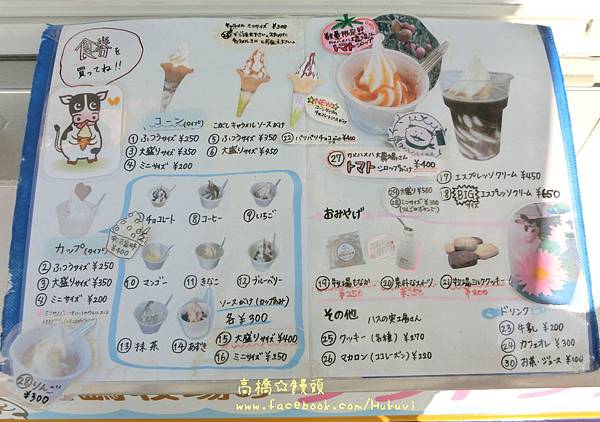 食券を
買ってね!!
キャラメル ミニサイズ ¥300
コーン(タイプ)
① ふつうサイズ ¥250
③ 大盛りサイズ ¥350
④ ミニサイズ ¥200
こがしキャラメルソースがけ
⑤ ふつうサイズ ¥350
⑥ 大盛りサイズ ¥450
NEW
㉒ パリパリチョコがけ
数量限定
カメハメハ大農場さんの
トマトシロップがけ
㉗ カメハメハ大農場さん
トマトシロップがけ ¥400
⑰ エスプレッソクリーム ¥450
⑱ BIG エスプレッソクリーム ¥650
カップ(タイプ)
② ふつうサイズ ¥250
③ 大盛りサイズ ¥350
④ ミニサイズ ¥200
⑦ チョコレート
⑧ コーヒー
⑨ いちご
⑩ マンゴー
⑪ きなこ
⑫ ブルーベリー
⑬ 抹茶
⑭ あずき
ソースがけ(カップのみ)
各 ¥300
⑮ 大盛りサイズ ¥400
⑯ ミニサイズ ¥250
大盛り ¥500
ミニサイズ ¥300
おみやげ
⑲ 牧場もなか
¥250
⑳ 素朴なスイーツ
¥350
㉑ 牧場ミルククッキー
¥200
その他
ハスの実工房さん
㉕ クッキー(各種) ¥270
㉖ マカロン(コレーズン) ¥220
ドリンク
㉓ 牛乳 ¥200
㉔ カフェオレ ¥300
㉚ お茶・ジュース ¥100
¥300
高橋☆饅頭
www.facebook.com/Hukuvi